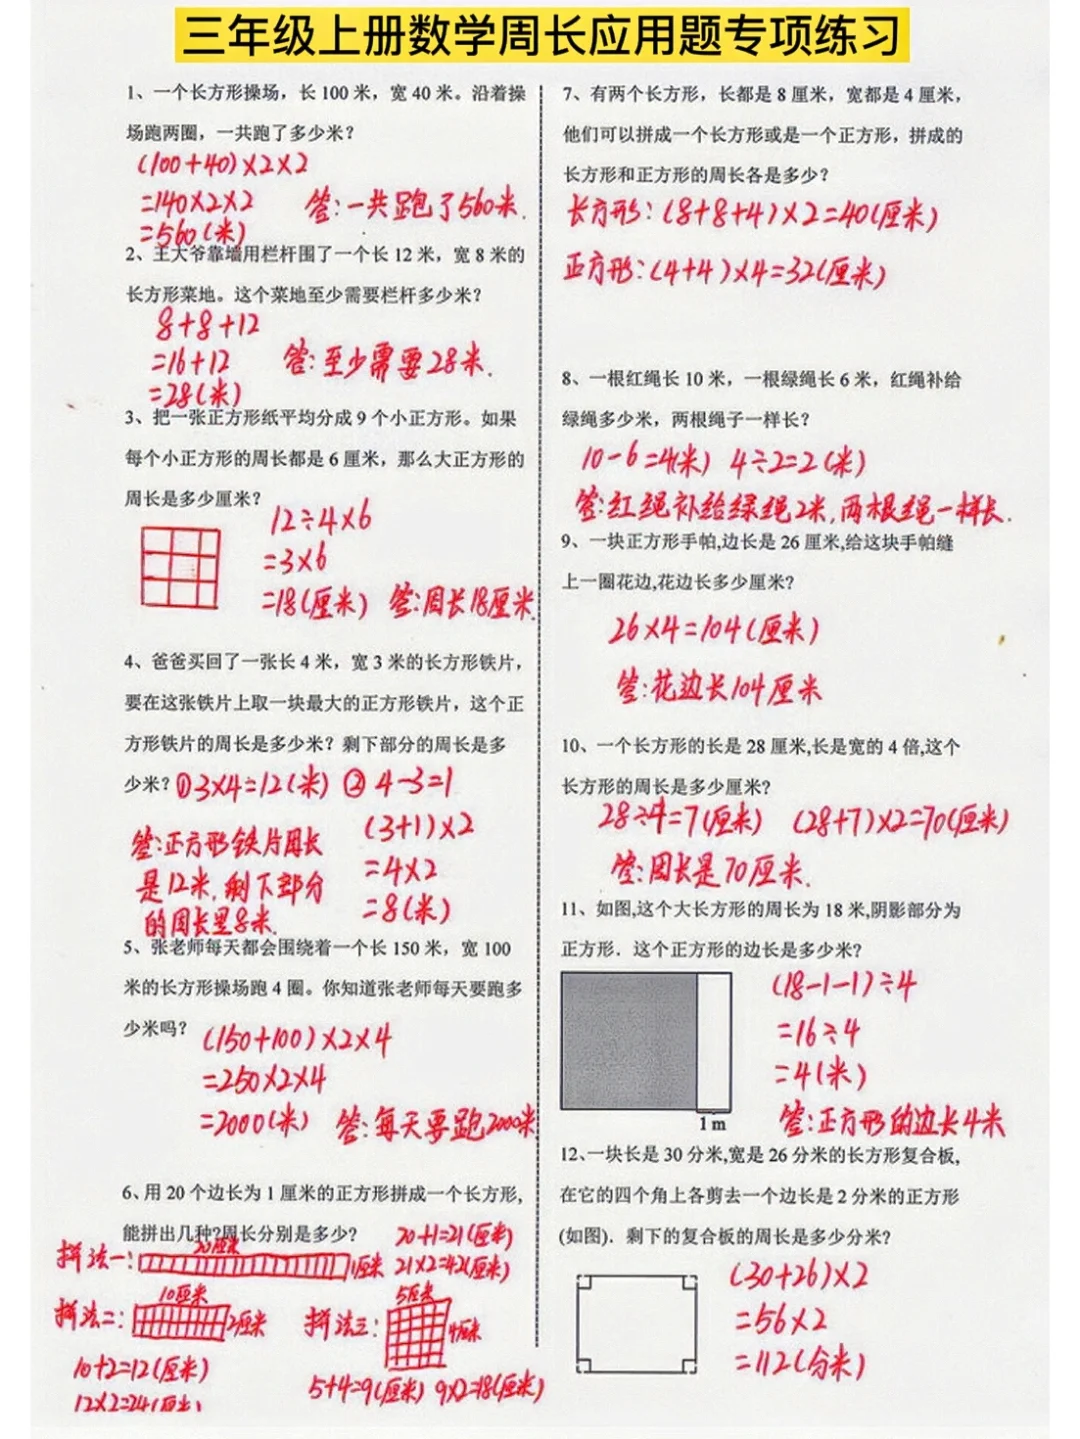 三年级上册数学周长应用题专项练习
1、一个长方形操场，长 100 米，宽 40 米。沿着操
场跑两圈，一共跑了多少米？
(100+40)×2×2
=140×2×2
答：一共跑了560米.
=560(米)
2、王大爷靠墙用栏杆围了一个长 12 米，宽 8 米的
长方形菜地。这个菜地至少需要栏杆多少米？
8+8+12
=16+12
答：至少需要28米.
=28(米)
3、把一张正方形纸平均分成 9 个小正方形。如果
每个小正方形的周长都是 6 厘米，那么大正方形的
周长是多少厘米？
12÷4×6
=3×6
=18(厘米)
答：周长18厘米.
4、爸爸买回了一张长 4 米，宽 3 米的长方形铁片，
要在这张铁片上取一块最大的正方形铁片，这个正
方形铁片的周长是多少米？剩下部分的周长是多
少米？
①3×4=12(米)
②4-3=1
(3+1)×2
=4×2
=8(米)
答：正方形铁片周长
是12米，剩下部分
的周长是8米.
5、张老师每天都会围绕着一个长 150 米，宽 100
米的长方形操场跑 4 圈。你知道张老师每天要跑多
少米吗？
(150+100)×2×4
=250×2×4
=2000(米)
答：每天要跑2000米
6、用 20 个边长为 1 厘米的正方形拼成一个长方形,
能拼出几种?周长分别是多少?
20+1=21(厘米)
拼法一：
20厘米
1厘米
21×2=42(厘米)
拼法二：
10厘米
2厘米
拼法三：
5厘米
4厘米
10+2=12(厘米)
12×2=24(厘米)
5+4=9(厘米)
9×2=18(厘米)
7、有两个长方形，长都是 8 厘米，宽都是 4 厘米，
他们可以拼成一个长方形或是一个正方形，拼成的
长方形和正方形的周长各是多少？
长方形：(8+8+4)×2=40(厘米)
正方形：(4+4)×4=32(厘米)
8、一根红绳长 10 米，一根绿绳长 6 米，红绳补给
绿绳多少米，两根绳子一样长？
10-6=4(米) 4÷2=2(米)
答：红绳补给绿绳2米，两根绳一样长.
9、一块正方形手帕,边长是 26 厘米,给这块手帕缝
上一圈花边,花边长多少厘米?
26×4=104(厘米)
答：花边长104厘米
10、一个长方形的长是 28 厘米,长是宽的 4 倍,这个
长方形的周长是多少厘米?
28÷4=7(厘米) (28+7)×2=70(厘米)
答：周长是70厘米.
11、如图,这个大长方形的周长为 18 米,阴影部分为
正方形．这个正方形的边长是多少米?
(18-1-1)÷4
=16÷4
=4(米)
1 m
答：正方形的边长4米
12、一块长是 30 分米,宽是 26 分米的长方形复合板,
在它的四个角上各剪去一个边长是 2 分米的正方形
(如图)．剩下的复合板的周长是多少分米?
(30+26)×2
=56×2
=112(分米)